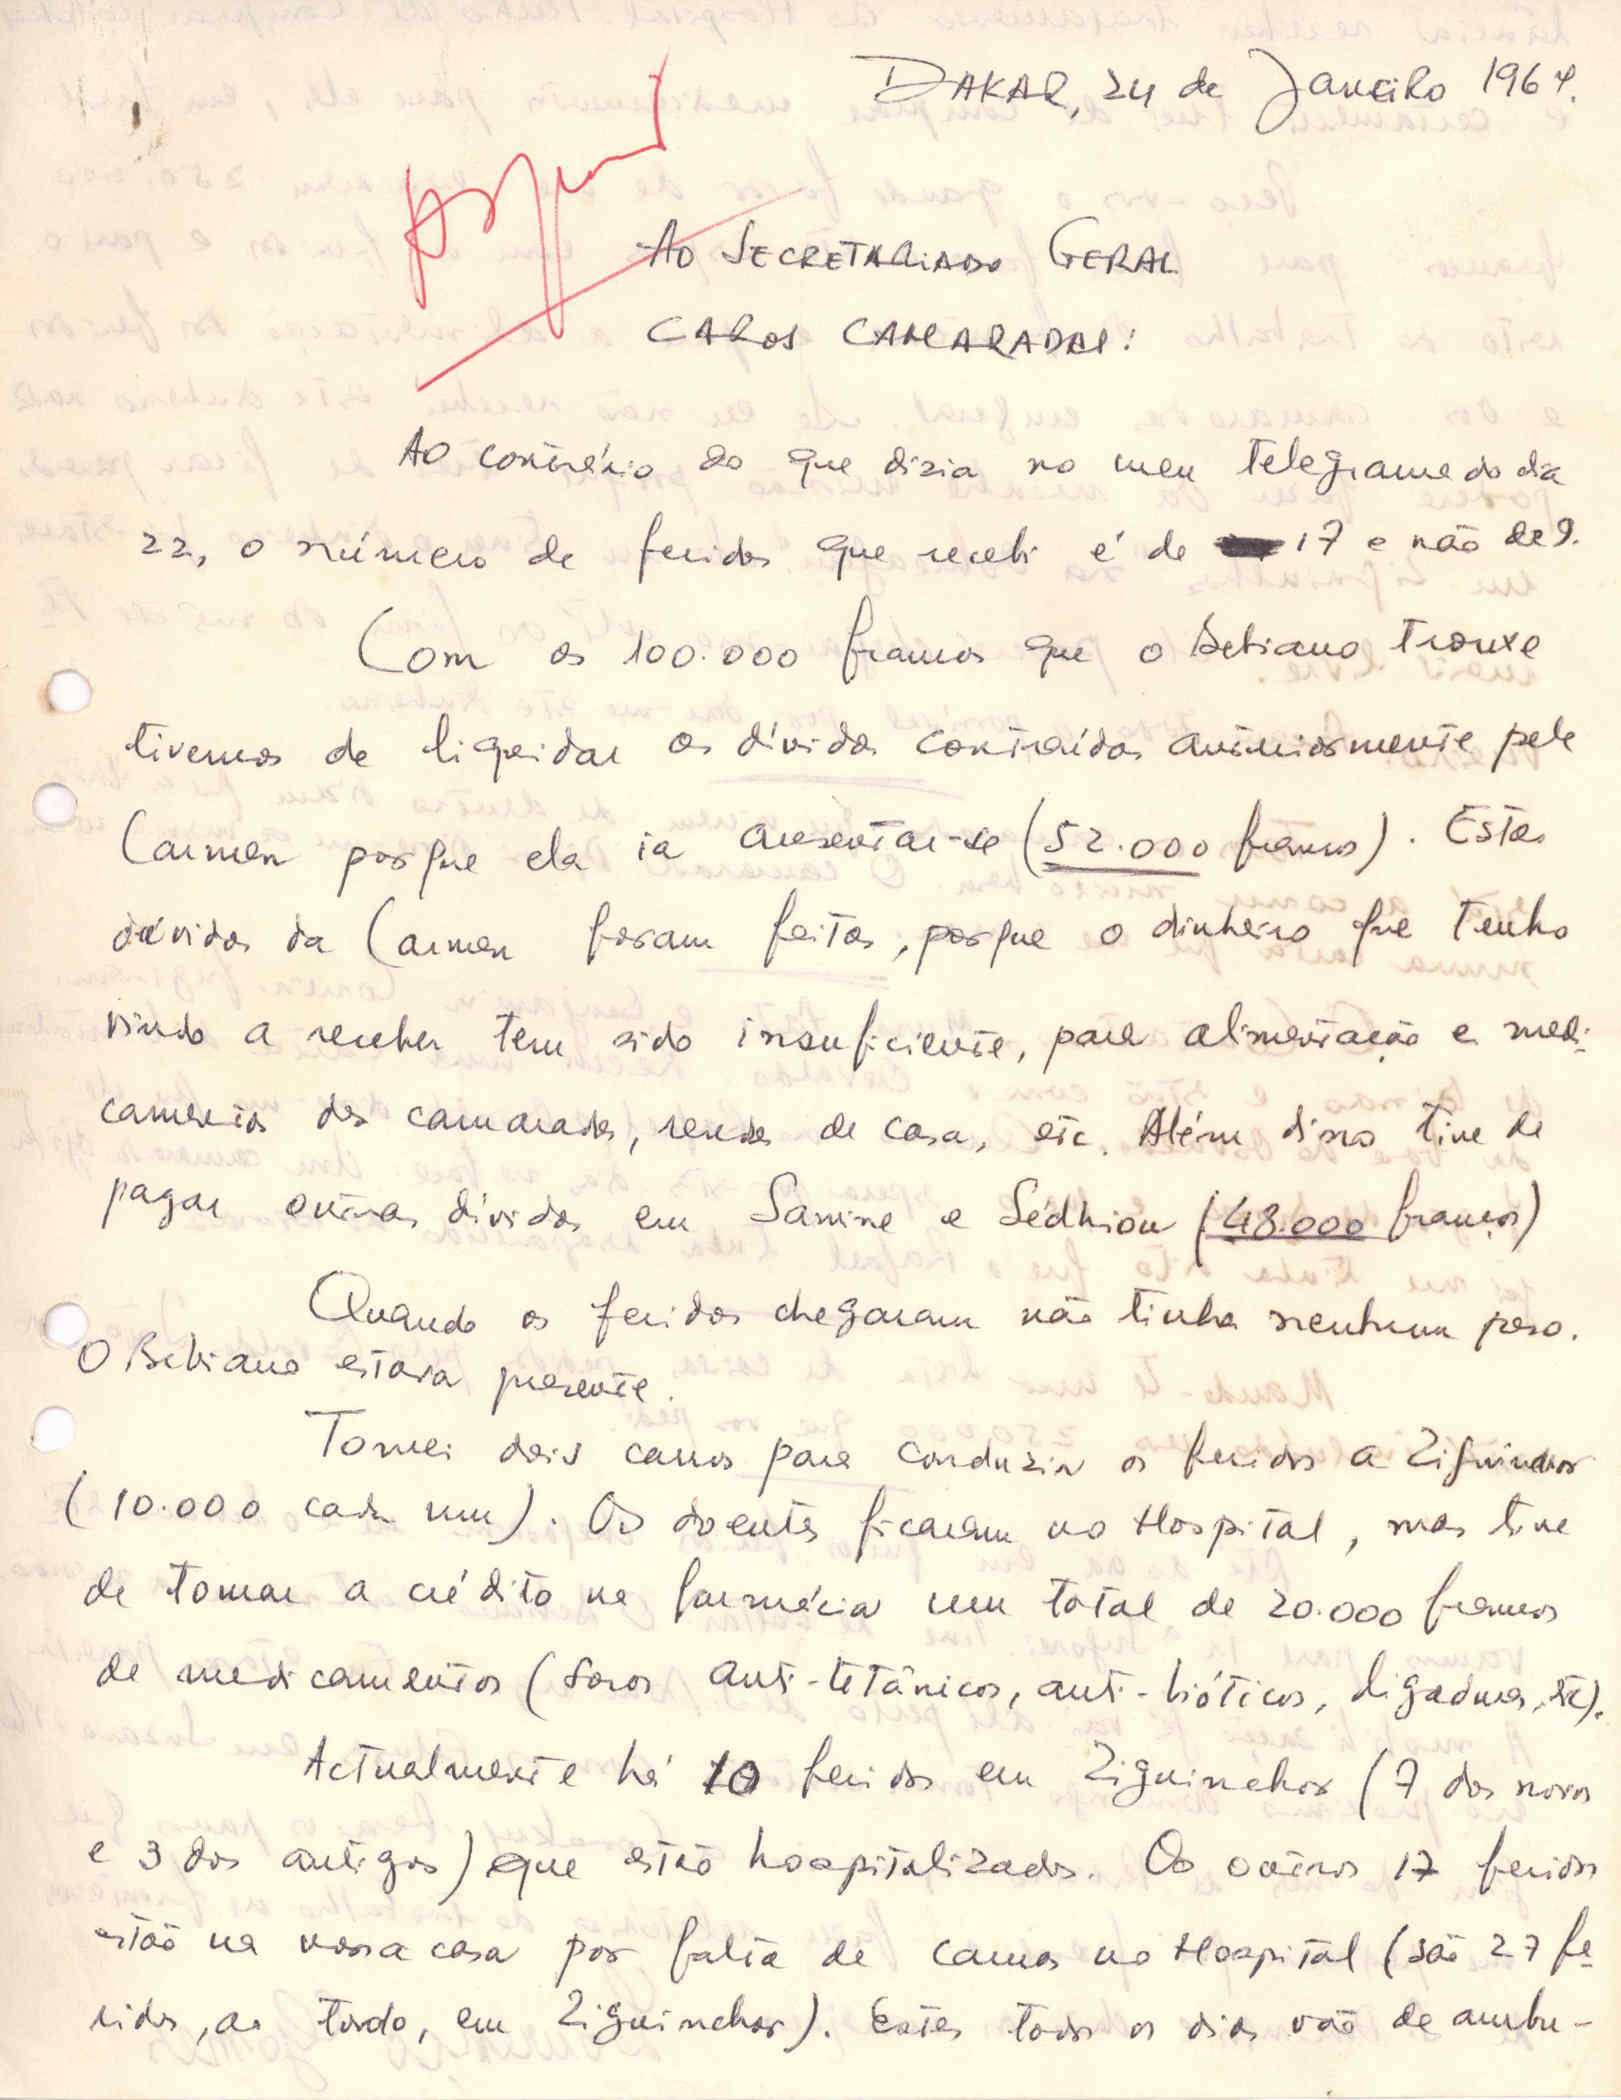 DAKAR, 24 de Janeiro 1964.
Ao SECRETARIADO GERAL
CAROS CAMARADAS:
Ao contrário do que dizia no meu telegrama do dia
22, o número de feridos que recebi é de 17 e não de 9.
Com os 100.000 francos que o Bebiano trouxe
tivemos de liquidar as dívidas contraídas anteriormente pela
Carmen porque ela ia ausentar-se (52.000 francos). Estas
dívidas da Carmen foram feitas, porque o dinheiro que tenho
vindo a receber tem sido insuficiente, para alimentação e medi-
camentos dos camaradas, rendas de casa, etc. Além disso tive de
pagar outras dívidas em Samine e Sédhiou (48.000 francos)
Quando os feridos chegaram não tinha nenhum peso.
O Bebiano estava presente.
Tomei dois carros para conduzir os feridos a Ziguinchor
(10.000 cada um). Os doentes ficaram no Hospital, mas tive
de tomar a crédito na farmácia um total de 20.000 francos
de medicamentos (soros anti-tetânicos, anti-bióticos, ligaduras, etc).
Actualmente há 10 feridos em Ziguinchor (7 dos novos
e 3 dos antigos) que estão hospitalizados. Os outros 17 feridos
estão na nossa casa por falta de camas no Hospital (são 27 fe-
ridos, ao todo, em Ziguinchor). Estes todos os dias vão de ambu-